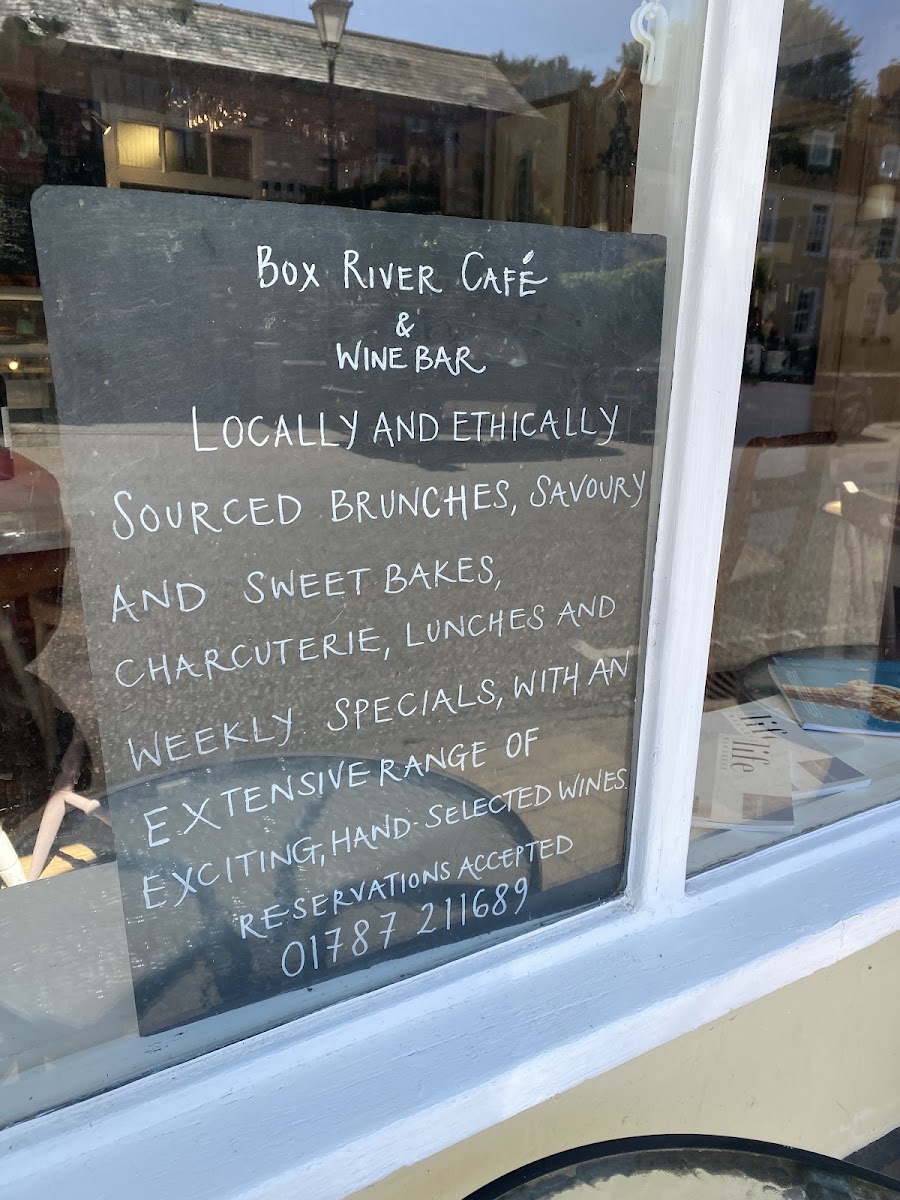 Box River Café
&
Wine Bar
Locally and Ethically
Sourced Brunches, Savoury
and Sweet Bakes,
Charcuterie, Lunches and
Weekly Specials, with an
Extensive Range of
Exciting, Hand-Selected Wines.
Reservations Accepted
01787 211689
life